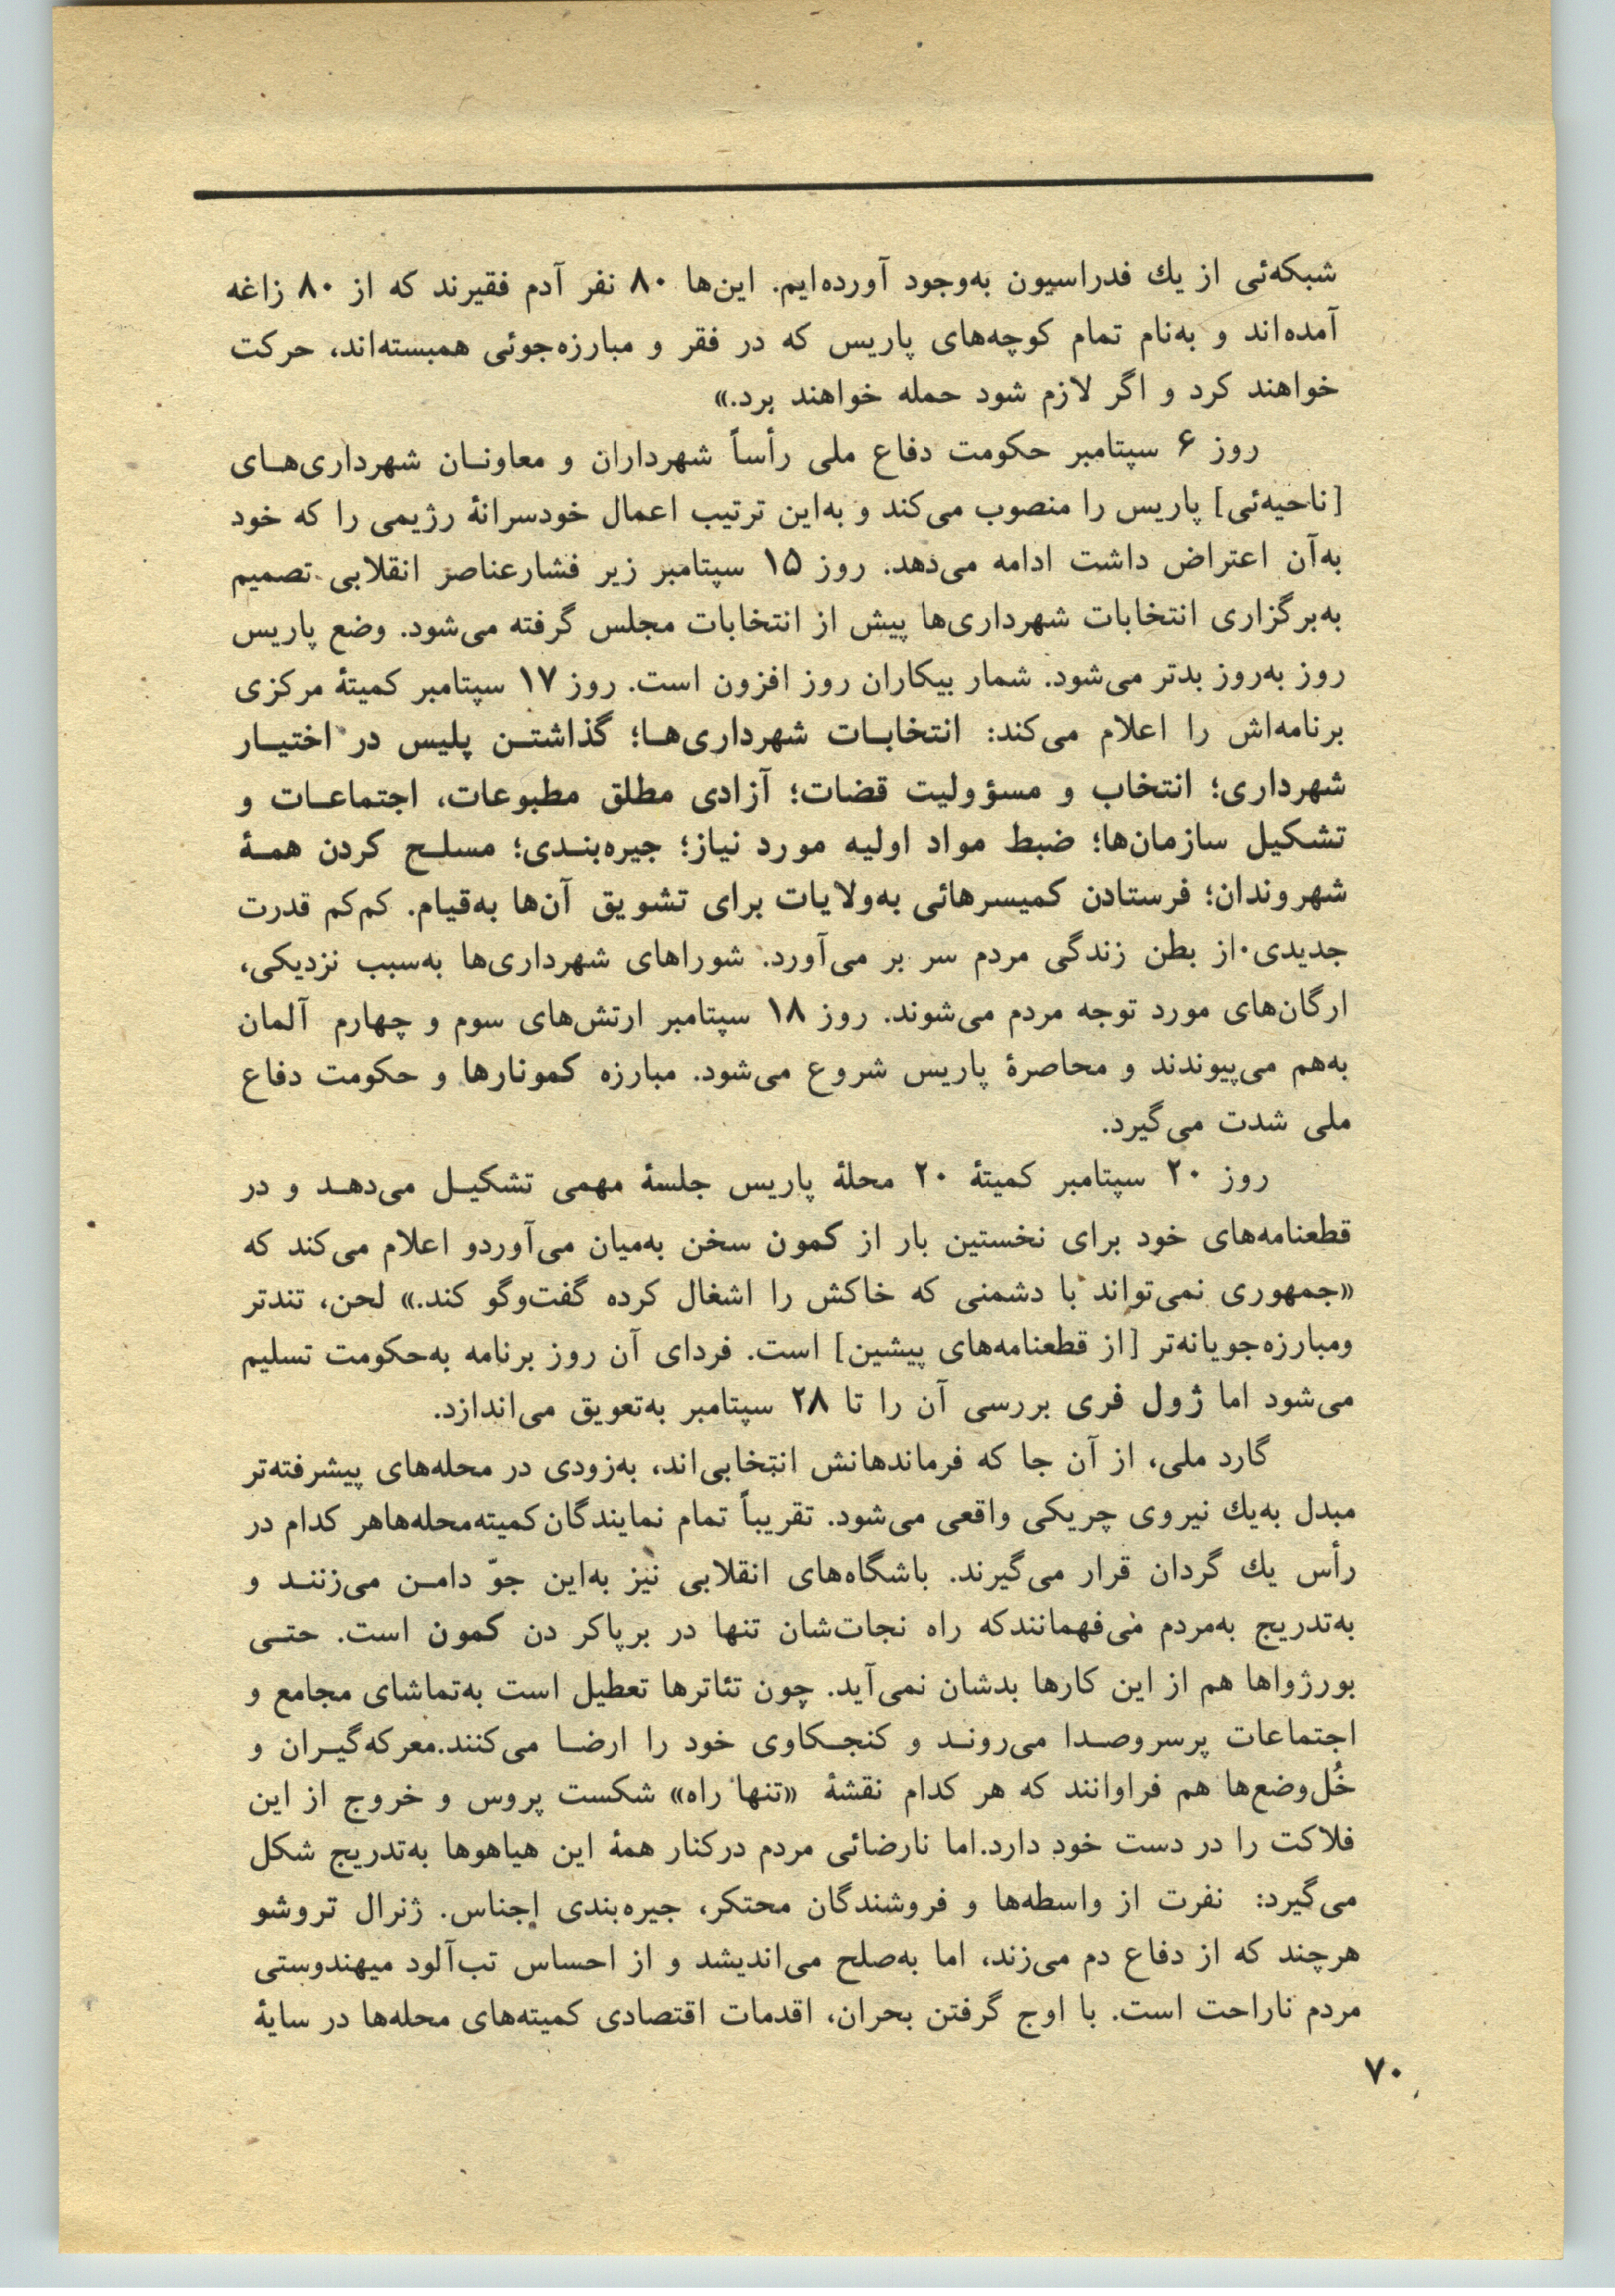 شبکه‌ئی از یك فدراسیون به‌وجود آورده‌ایم. این‌ها ۸۰ نفر آدم فقیرند که از ۸۰ زاغه
آمده‌اند و به‌نام تمام کوچه‌های پاریس که در فقر و مبارزه‌جوئی همبسته‌اند، حرکت
خواهند کرد و اگر لازم شود حمله خواهند برد.»
روز ۶ سپتامبر حکومت دفاع ملی رأساً شهرداران و معاونـان شهرداری‌هـای
[ناحیه‌ئی] پاریس را منصوب می‌کند و به‌این ترتیب اعمال خودسرانهٔ رژیمی را که خود
به‌آن اعتراض داشت ادامه می‌دهد. روز ۱۵ سپتامبر زیر فشارعناصر انقلابی تصمیم
به‌برگزاری انتخابات شهرداری‌ها پیش از انتخابات مجلس گرفته می‌شود. وضع پاریس
روز به‌روز بدتر می‌شود. شمار بیکاران روز افزون است. روز ۱۷ سپتامبر کمیتهٔ مرکزی
برنامه‌اش را اعلام می‌کند: انتخابـات شهرداری‌هـا؛ گذاشتـن پلیس در اختیـار
شهرداری؛ انتخاب و مسؤولیت قضات؛ آزادی مطلق مطبوعات، اجتماعـات و
تشکیل سازمان‌ها؛ ضبط مواد اولیه مورد نیاز؛ جیره‌بنـدی؛ مسلـح کردن همـهٔ
شهروندان؛ فرستادن کمیسرهائی به‌ولایات برای تشویق آن‌ها به‌قیام. کم‌کم قدرت
جدیدی از بطن زندگی مردم سر بر می‌آورد. شوراهای شهرداری‌ها به‌سبب نزدیکی،
ارگان‌های مورد توجه مردم می‌شوند. روز ۱۸ سپتامبر ارتش‌های سوم و چهارم آلمان
به‌هم می‌پیوندند و محاصرهٔ پاریس شروع می‌شود. مبارزه کمونارها و حکومت دفاع
ملی شدت می‌گیرد.
روز ۲۰ سپتامبر کمیتهٔ ۲۰ محلهٔ پاریس جلسهٔ مهمی تشکیـل می‌دهـد و در
قطعنامه‌های خود برای نخستین بار از کمون سخن به‌میان می‌آوردو اعلام می‌کند که
«جمهوری نمی‌تواند با دشمنی که خاکش را اشغال کرده گفت‌وگو کند.» لحن، تندتر
ومبارزه‌جویانه‌تر [از قطعنامه‌های پیشین] است. فردای آن روز برنامه به‌حکومت تسلیم
می‌شود اما ژول فری بررسی آن را تا ۲۸ سپتامبر به‌تعویق می‌اندازد.
گارد ملی، از آن جا که فرماندهانش انتخابی‌اند، به‌زودی در محله‌های پیشرفته‌تر
مبدل به‌یك نیروی چریکی واقعی می‌شود. تقریباً تمام نمایندگان‌کمیته‌محله‌هاهر کدام در
رأس یك گردان قرار می‌گیرند. باشگاه‌های انقلابی نیز به‌این جوّ دامـن می‌زننـد و
به‌تدریج به‌مردم می‌فهمانندکه راه نجات‌شان تنها در برپاکر دن کمون است. حتـی
بورژواها هم از این کارها بدشان نمی‌آید. چون تئاترها تعطیل است به‌تماشای مجامع و
اجتماعات پرسروصـدا می‌رونـد و کنجـکاوی خود را ارضـا می‌کنند.معرکه‌گیـران و
خُل‌وضع‌ها هم فراوانند که هر کدام نقشهٔ «تنها راه» شکست پروس و خروج از این
فلاکت را در دست خود دارد.اما نارضائی مردم درکنار همهٔ این هیاهوها به‌تدریج شکل
می‌گیرد: نفرت از واسطه‌ها و فروشندگان محتکر، جیره‌بندی اجناس. ژنرال تروشو
هرچند که از دفاع دم می‌زند، اما به‌صلح می‌اندیشد و از احساس تب‌آلود میهندوستی
مردم ناراحت است. با اوج گرفتن بحران، اقدمات اقتصادی کمیته‌های محله‌ها در سایهٔ
۷۰